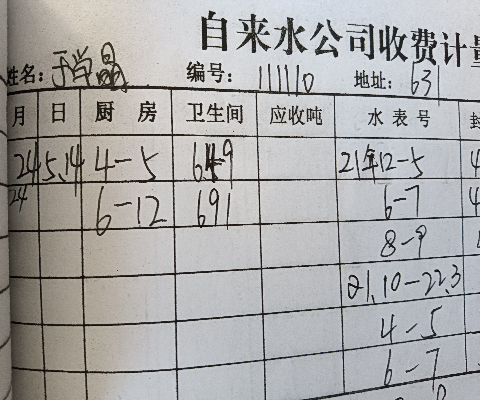 自来水公司收费计量
姓名: 于学晶 编号: 111110 地址: 631
月 日 厨 房 卫生间 应收吨 水 表 号
24 5.14 4-5 21年12-5
24 6-12 691 6-7
8-9
21.10-22.3
4-5
6-7